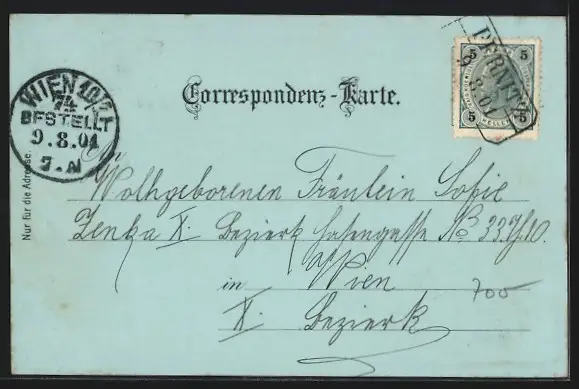 Correspondenz-Karte.
WIEN 10/2
74
BESTELLT
9.8.01
7.N
5 5
PERNITZ
8.01
HELLER
5 5
Nur für die Adresse.
Wolhgeborenen Fräulein Sofie
Zenka X. Bezierk Hasengasse No 33 Th. 10.
in Wien
700
X. Bezierk